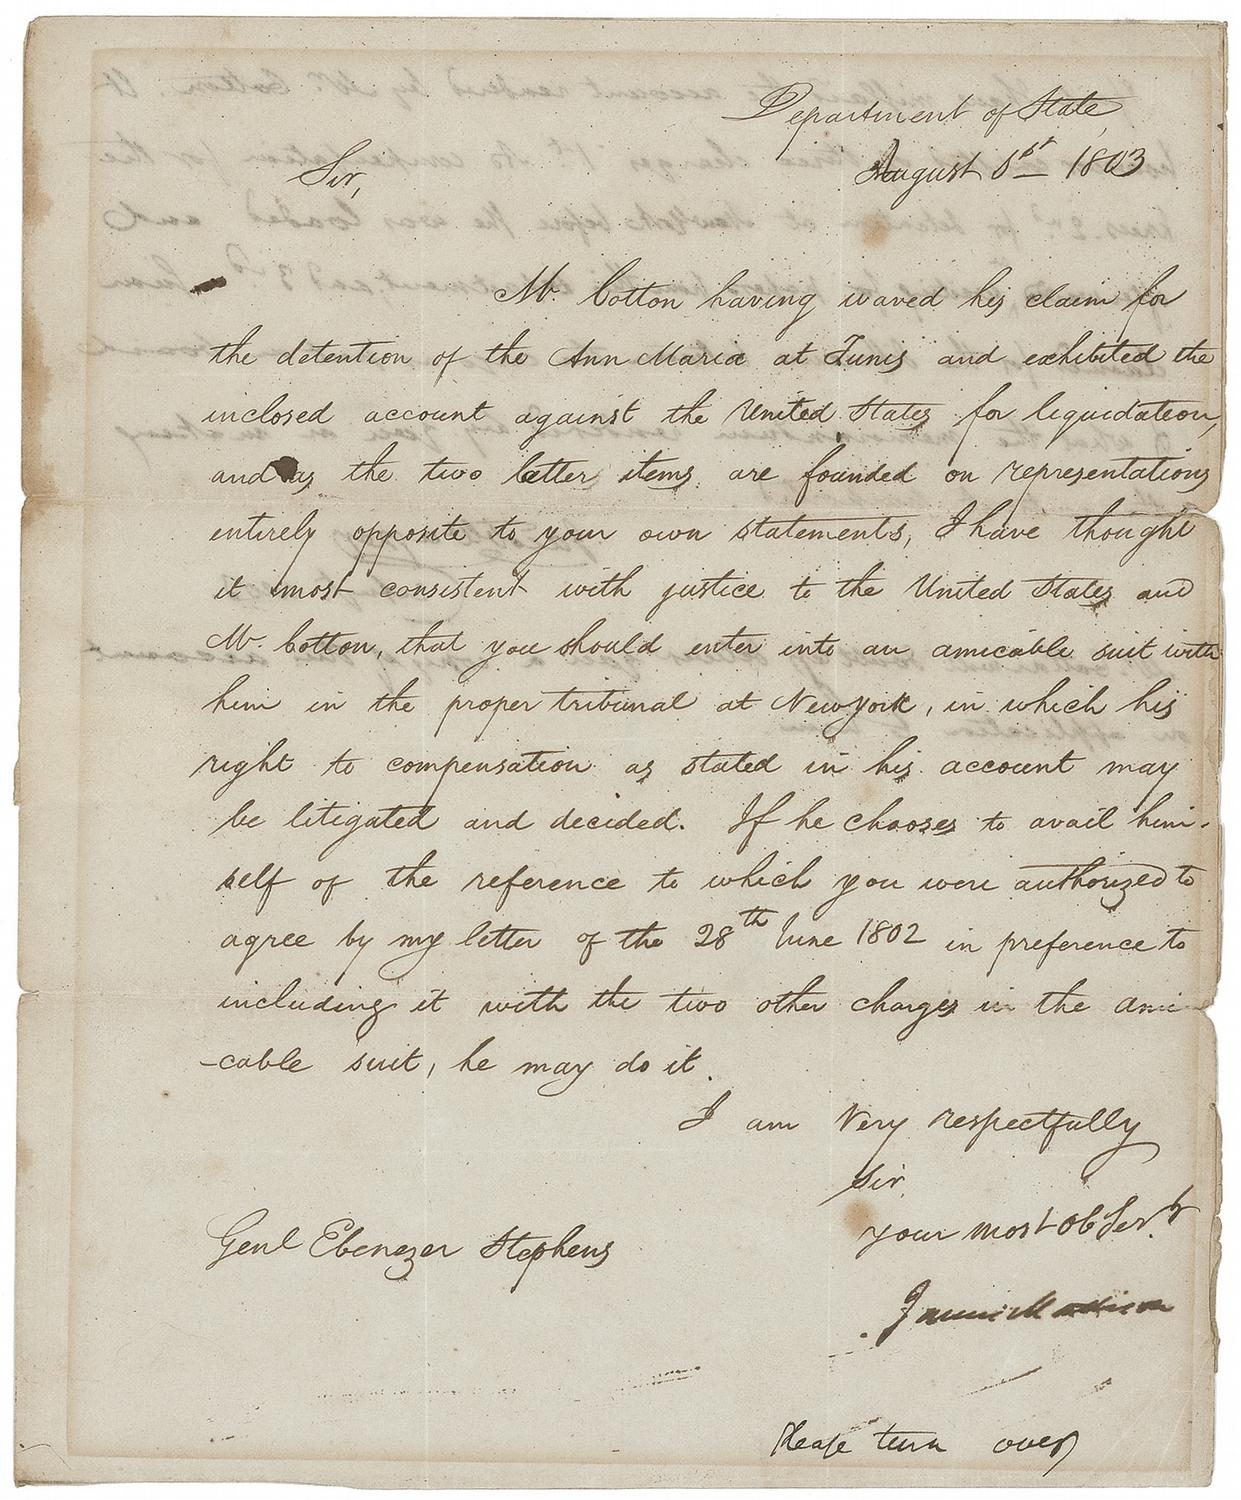 Department of State,
August 1st 1803
Sir,
Mr. Cotton having waved his claim for
the detention of the Ann Maria at Tunis and exhibited the
inclosed account against the United States for liquidation,
and as the two latter items are founded on representations
entirely opposite to your own statements, I have thought
it most consistent with justice to the United States and
Mr. Cotton, that you should enter into an amicable suit with
him in the proper tribunal at New York, in which his
right to compensation as stated in his account may
be litigated and decided. If he chooses to avail him-
self of the reference to which you were authorized to
agree by my letter of the 28th June 1802 in preference to
including it with the two other charges in the ami-
-cable suit, he may do it.
I am Very respectfully
Sir,
your most Ob Servt.
James Madison
Genl Ebenezer Stephens
Please turn over